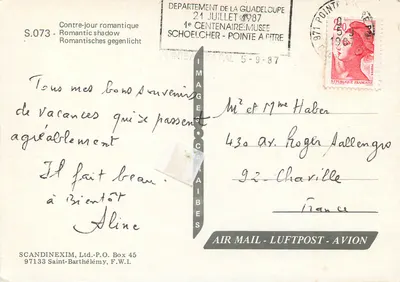 Contre-jour romantique
S.073 - Romantic shadow
Romantisches gegenlicht
DEPARTEMENT DE LA GUADELOUPE
21 JUILLET 1987
1e CENTENAIRE MUSEE
SCHOELCHER - POINTE A PITRE
5-9-87
971 POINTE
Tous mes bons souvenirs
de vacances qui se passent
agréablement
Il fait beau.
à Bientôt
Aline
IMAGES CARAIBES
Mr et Mme Haber
430 av. Roger Sallengro
92. Chaville
France
AIR MAIL - LUFTPOST - AVION
SCANDINEXIM, Ltd.-P.O. Box 45
97133 Saint-Barthélémy, F.W.I.